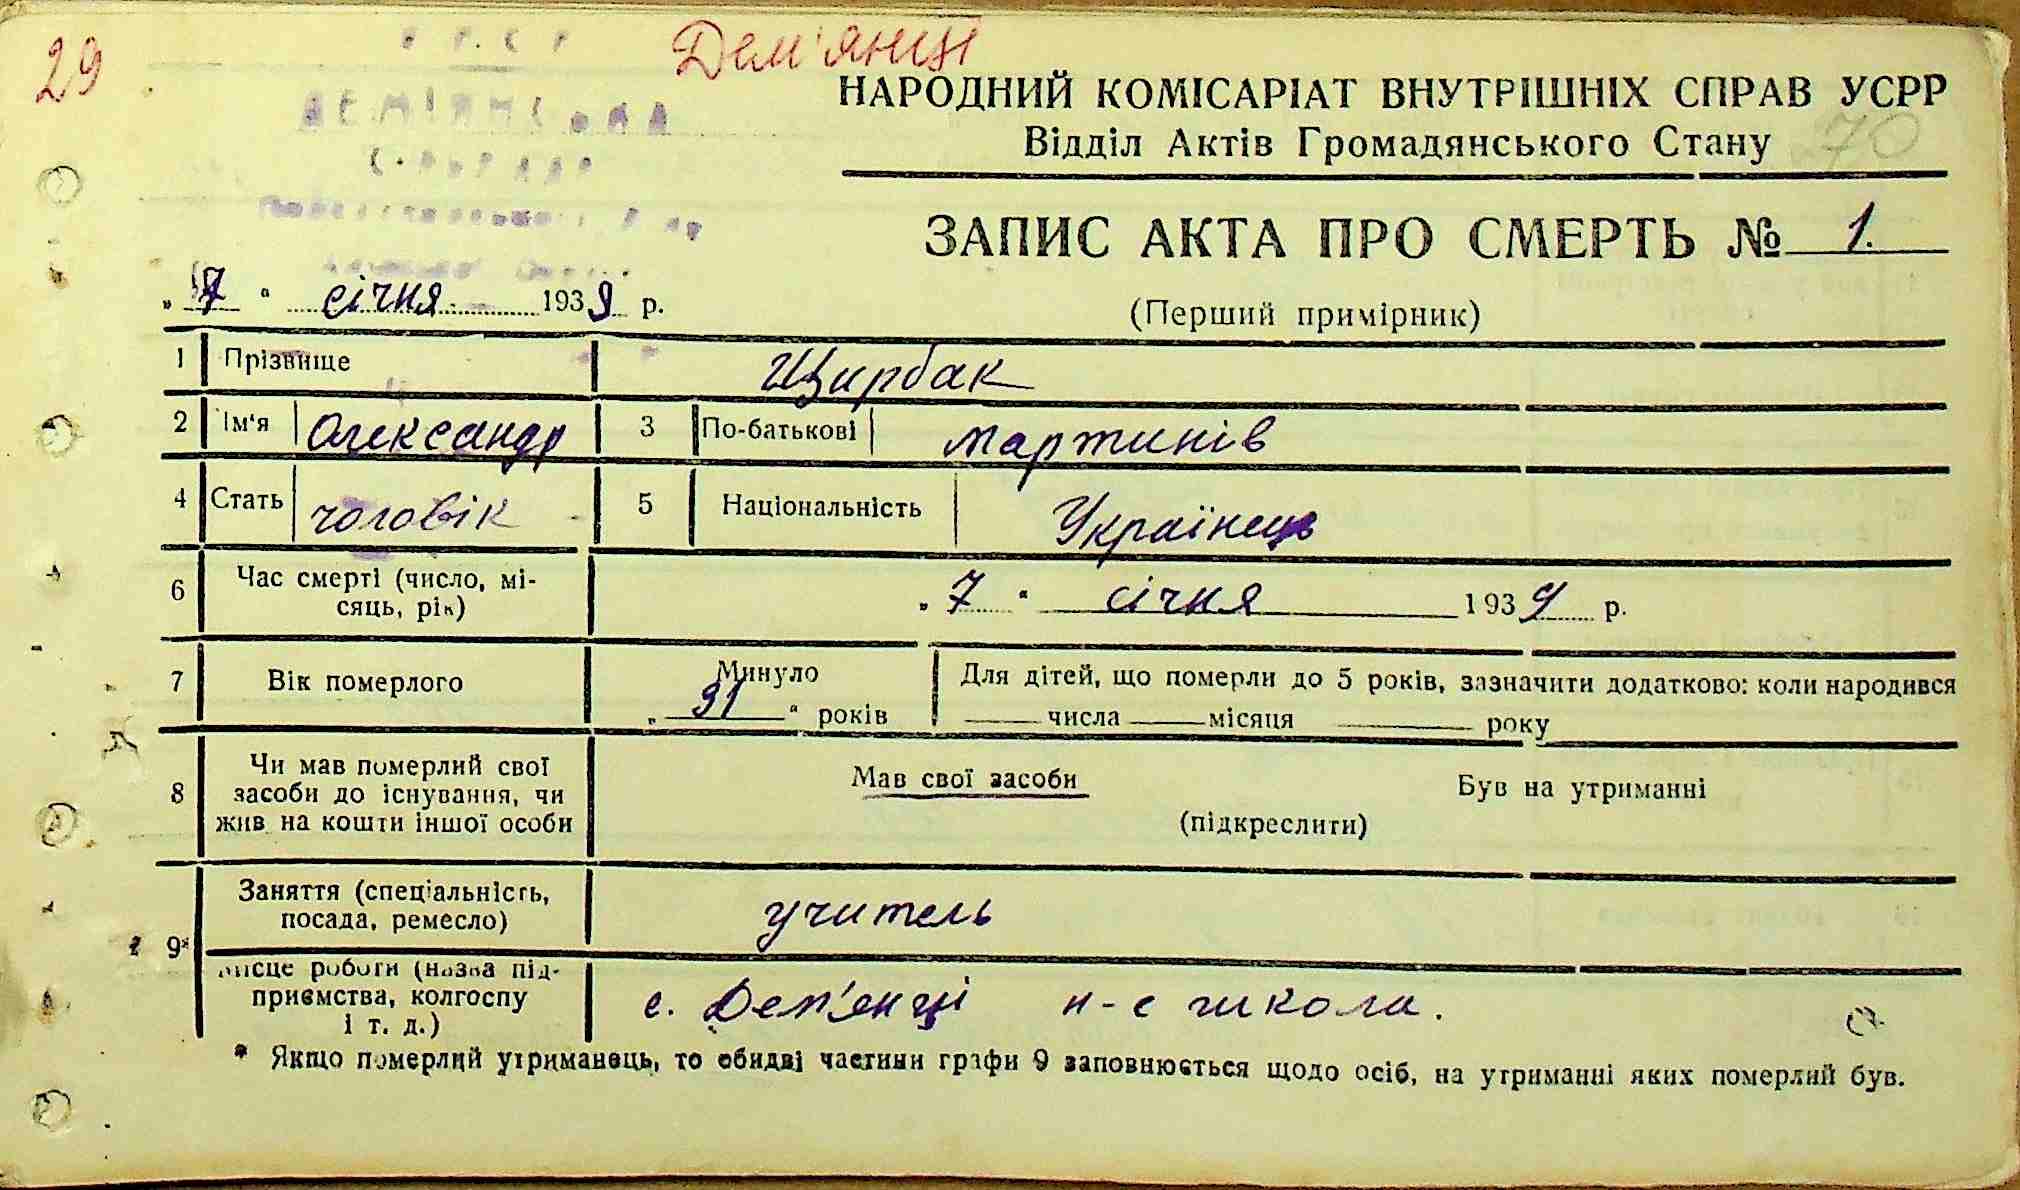 29
Дем'янці
УРСР
ДЕМ'ЯНСЬКА
НАРОДНИЙ КОМІСАРІАТ ВНУТРІШНІХ СПРАВ УСРР
Відділ Актів Громадянського Стану
70
ЗАПИС АКТА ПРО СМЕРТЬ № 1.
„ 7 “ січня 1939 р.
(Перший примірник)
1 Прізвище Щирбак
2 Ім'я Олександр 3 По-батькові Мартинів
4 Стать чоловік 5 Національність Українець
6 Час смерті (число, мі-
сяць, рік) „ 7 “ січня 1939 р.
7 Вік померлого Минуло „ 91 “ років Для дітей, що померли до 5 років, зазначити додатково: коли народився
числа місяця року
8 Чи мав померлий свої
засоби до існування, чи
жив на кошти іншої особи
Мав свої засоби Був на утриманні
(підкреслити)
9* Заняття (спеціальність,
посада, ремесло) учитель
Місце роботи (назва під-
приємства, колгоспу
і т. д.) с. Дем'енці н-с школа.
* Якщо померлий утриманець, то обидві частини графи 9 заповнюється щодо осіб, на утриманні яких померлий був.